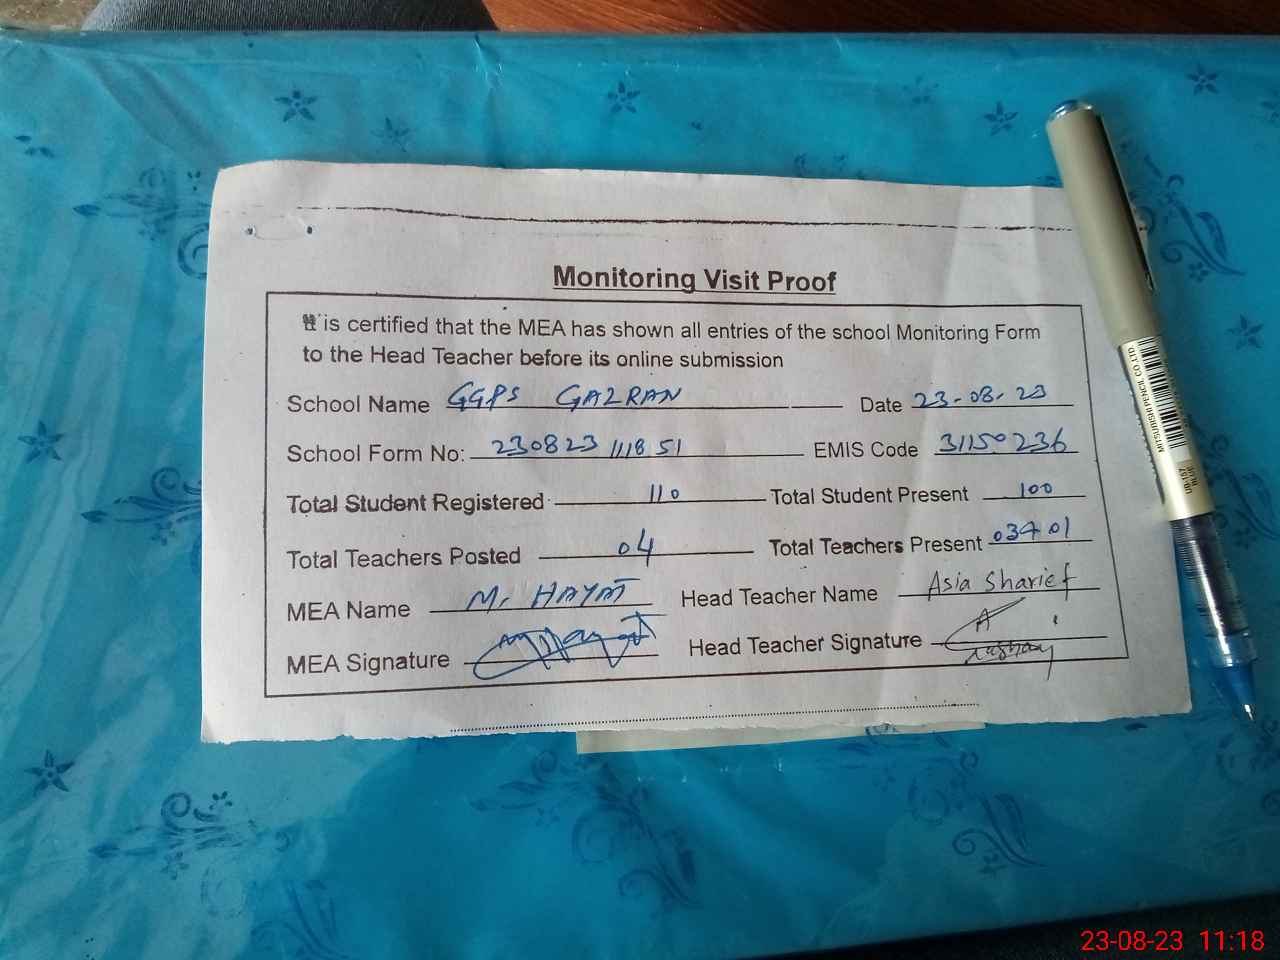 Monitoring Visit Proof
It is certified that the MEA has shown all entries of the school Monitoring Form
to the Head Teacher before its online submission
School Name GGPS GAZRAN Date 23-08-23
School Form No: 230823 111851 EMIS Code 31150236
Total Student Registered 110 Total Student Present 100
Total Teachers Posted 04 Total Teachers Present 03+01
MEA Name M. HAYAT Head Teacher Name Asia Sharief
MEA Signature Head Teacher Signature
MITSUBISHI PENCIL CO.,LTD
UB-157
BLUE
23-08-23 11:18